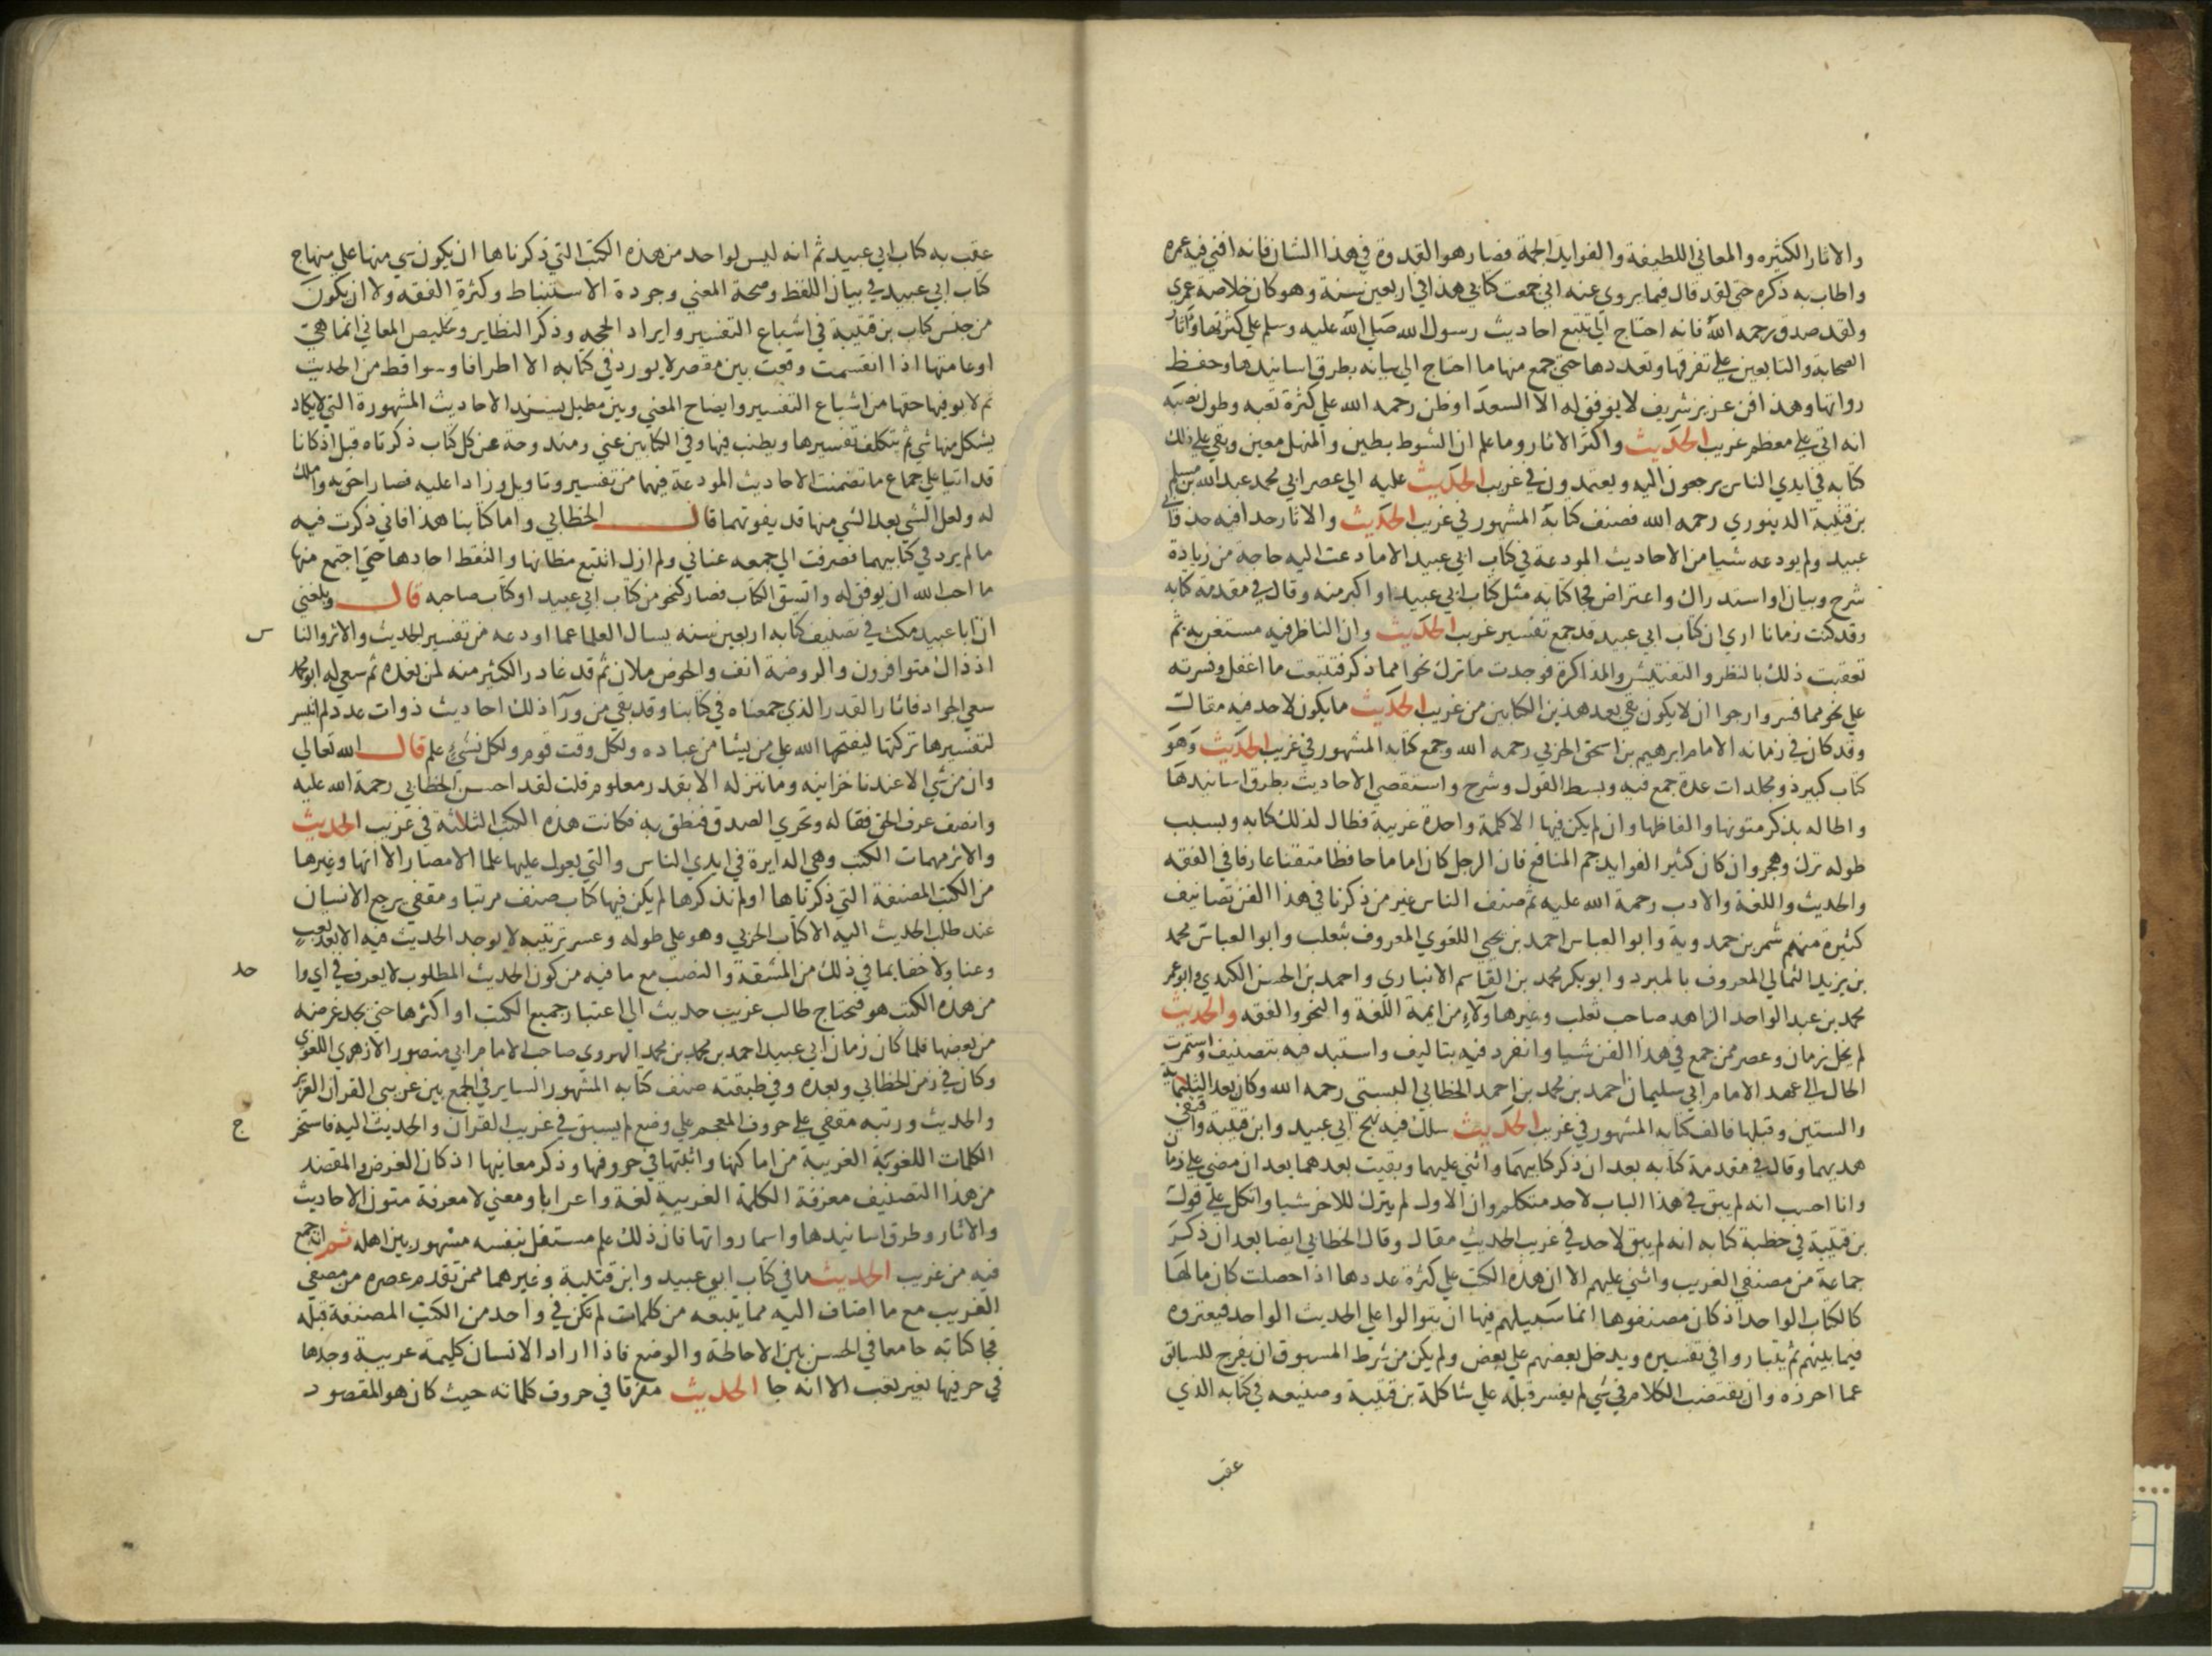 والاثار الكثيره والمعاني اللطيفة والفوايد الجمة فصار هو القدوة في هذا الشان فانه افني فيه عمره
واطاب به ذكره حتي لقد قال فيما يروي عنه اني جمعت كتابي هذا في اربعين سنة وهو كان خلاصة عمري
ولقد صدق رحمه الله فانه احتاج الي تتبع احاديث رسول الله صلي الله عليه وسلم علي كثرتها واثار
الصحابة والتابعين علي تفرقها وتعددها حتي جمع منها ما احتاج الي بيانه بطرق اسانيدها وحفظ
رواتها وهذا فن عزيز شريف لا يوفق له الا السعدا وظن رحمه الله علي كثرة تعبه وطول نصبه
انه اتي علي معظم غريب الحديث واكثر الاثار وما علم ان الشوط بطين والمنهل معين وبقي علي ذلك
كتابه في ايدي الناس يرجعون اليه ويعتمدون في غريب الحديث عليه الي عصر ابي محمد عبد الله بن مسلم
بن قتيبة الدينوري رحمه الله فصنف كتابه المشهور في غريب الحديث والاثار حذا فيه حذو ابي
عبيد ولم يودعه شيا من الاحاديث المودعة في كتاب ابي عبيد الا ما دعت اليه حاجة من زيادة
شرح وبيان او استدراك واعتراض فجا كتابه مثل كتاب ابي عبيد او اكبر منه وقال في مقدمة كتابه
وقد كنت زمانا اري ان كتاب ابي عبيد قد جمع تفسير غريب الحديث وان الناظر فيه مستغن به ثم
تعقبت ذلك بالنظر والتفتيش والمذاكرة فوجدت ما ترك نحوا مما ذكر فتتبعت ما اغفل وفسرته
علي نحو مما فسر وارجوا ان لا يكون بقي بعد هذين الكتابين من غريب الحديث ما يكون لاحد فيه مقال
وقد كان في زمانه الامام ابرهيم بن اسحق الحربي رحمه الله وجمع كتابه المشهور في غريب الحديث وهو
كتاب كبير ذو مجلدات عدة جمع فيه وبسط القول وشرح واستقصي الاحاديث بطرق اسانيدها
واطاله بذكر متونها والفاظها وان لم يكن فيها الا كلمة واحدة غريبة فطال لذلك كتابه وبسبب
طوله ترك وهجر وان كان كثير الفوايد جم المنافع فان الرجل كان اماما حافظا متقنا عارفا في الفقه
والحديث واللغة والادب رحمة الله عليه ثم صنف الناس غير من ذكرنا في هذا الفن تصانيف
كثيرة منهم شمر بن حمدوية وابو العباس احمد بن يحيي اللغوي المعروف بثعلب وابو العباس محمد
بن يزيد الثمالي المعروف بالمبرد وابو بكر محمد بن القاسم الانباري واحمد بن الحسن الكندي وابو عمر
محمد بن عبد الواحد الزاهد صاحب ثعلب وغير هاولا من ايمة اللغة والنحو والفقه والحديث
لم يخل زمان وعصر ممن جمع في هذا الفن شيا وانفرد فيه بتاليف واستبد فيه بتصنيف واستمرت
الحال الي عهد الامام ابي سليمان احمد بن محمد بن احمد الخطابي البستي رحمه الله وكان بعد الثلثماية
والستين وقبلها فالف كتابه المشهور في غريب الحديث سلك فيه نهج ابي عبيد وابن قتيبة واقتفي
هديهما وقال في مقدمة كتابه بعد ان ذكر كتابيهما واثني عليهما وبقيت بعدهما بعد ان مضي علي زمان
وانا احسب انه لم يبق في هذا الباب لاحد متكلم وان الاول لم يترك للاخر شيا واتكل علي قول
بن قتيبة في خطبة كتابه انه لم يبق لاحد في غريب الحديث مقال وقال الخطابي ايضا بعد ان ذكر
جماعة من مصنفي الغريب واثني عليهم الا ان هذه الكتب علي كثرة عددها اذا حصلت كان مالها
كالكتاب الواحد اذ كان مصنفوها انما سبيلهم فيها ان يتوالوا علي الحديث الواحد فيعتروه
فيما بينهم ثم يتباروا في تفسيره ويدخل بعضهم علي بعض ولم يكن من شرط المسبوق ان يفرج للسابق
عما احرزه وان يقتضب الكلام في شي لم يفسر قبله علي شاكلة بن قتيبة وصنيعه في كتابه الذي
عقب
عقب به كتاب ابي عبيد ثم انه ليس لواحد من هذه الكتب التي ذكرناها ان يكون شي منها علي منهاج
كتاب ابي عبيد في بيان اللفظ وصحة المعني وجودة الاستنباط وكثرة الفقه ولا ان يكون
من جنس كتاب بن قتيبة في اشباع التفسير وايراد الحجه وذكر النظاير وتخليص المعاني انما هي
او عامتها اذا انقسمت وقعت بين مقصر لا يورد في كتابه الا اطرافا وسواقط من الحديث
ثم لا يوفيها حقها من اشباع التفسير وايضاح المعني وبين مطيل يسرد الاحاديث المشهورة التي لا يكاد
يشكل منها شي ثم يتكلف تفسيرها ويطنب فيها وفي الكتابين غني ومندوحة عن كل كتاب ذكرناه قبل اذ كانا
قد اتيا علي جماع ما تضمنت الاحاديث المودعة فيهما من تفسير وتاويل وزادا عليه فصارا احق به واملك
له ولعل الشي بعد الشي منها قد يفوتهما قال الخطابي واما كتابنا هذا فاني ذكرت فيه
ما لم يرد في كتابيهما فصرفت الي جمعه عنايي ولم ازل اتتبع مظانها والتقط احادها حتي اجتمع منها
ما احب الله ان يوفق له واتسق الكتاب فصار كنحو من كتاب ابي عبيد او كتاب صاحبه قال وبلغني
ان ابا عبيد مكث في تصنيف كتابه اربعين سنه يسال العلما عما اودعه من تفسير الحديث والاثر والنا
س
اذ ذاك متوافرون والروضة انف والحوض ملان ثم قد غادر الكثير منه لمن بعده ثم سعي له ابو محمد
سعي الجواد فاثار القدر الذي جمعناه في كتابنا وقد بقي من ورآ ذلك احاديث ذوات عدد لم اتيسر
لتفسيرها تركتها ليفتحها الله علي من يشا من عباده ولكل وقت قوم ولكل نشي علم قال الله تعالي
وان من شي الا عندنا خزاينه وما ننزله الا بقدر معلوم قلت لقد احسن الخطابي رحمة الله عليه
وانصف عرف الحق فقاله وتحري الصدق فنطق به فكانت هذه الكتب الثلاثة في غريب الحديث
والاثر مهمات الكتب وهي الدايرة في ايدي الناس والتي يعول عليها علما الامصار الا انها وغيرها
من الكتب المصنفة التي ذكرناها او لم نذكرها لم يكن فيها كتاب صنف مرتبا ومقفي يرجع الانسان
عند طلب الحديث اليه الا كتاب الحربي وهو علي طوله وعسر ترتيبه لا يوجد الحديث فيه الا بعد تعب
وعنا ولا خفا بما في ذلك من المشقة والنصب مع ما فيه من كون الحديث المطلوب لا يعرف في اي وا
حد
من هذه الكتب هو فيحتاج طالب غريب حديث الي اعتبار جميع الكتب او اكثرها حتي يجد غرضه
من بعضها فلما كان زمان ابي عبيد احمد بن محمد بن محمد الهروي صاحب الامام ابي منصور الازهري اللغوي
وكان في زمن الخطابي وبعده وفي طبقته صنف كتابه المشهور الساير في الجمع بين غريبي القران العزيز
والحديث ورتبه مقفي علي حروف المعجم علي وضع لم يسبق في غريب القران والحديث اليه فاستخر
ج
الكلمات اللغوية الغريبة من اماكنها واثبتها في حروفها وذكر معانيها اذ كان الغرض والمقصد
من هذا التصنيف معرفة الكلمة الغريبة لغة واعرابا ومعني لا معرفة متون الاحاديث
والاثار وطرق اسانيدها واسما رواتها فان ذلك علم مستقل بنفسه مشهور بين اهله ثم انه جمع
فيه من غريب الحديث ما في كتاب ابو عبيد وابن قتيبة وغيرهما ممن تقدم عصره من مصنفي
الغريب مع ما اضاف اليه مما يتبعه من كلمات لم تكن في واحد من الكتب المصنفة قبله
فجا كتابه جامعا في الحسن بين الاحاطة والوضع فاذا اراد الانسان كلمة غريبة وجدها
في حرفها بغير تعب الا انه جا الحديث مفرقا في حروف كلماته حيث كان هو المقصود